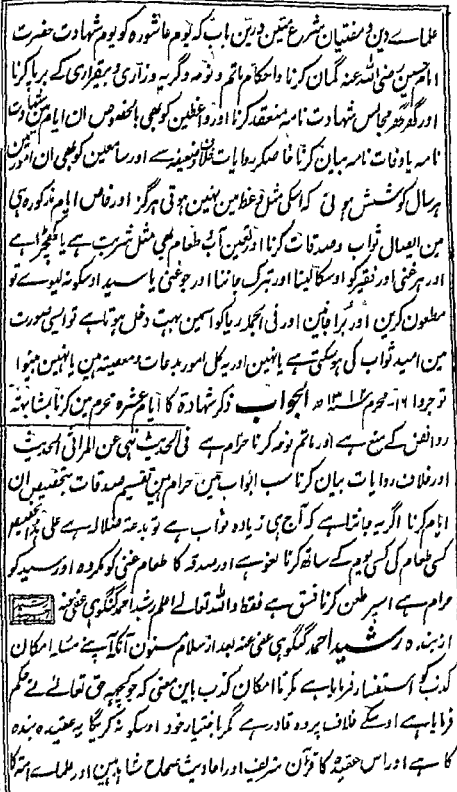 علماے دین و مفتیان شرع متین درین باب کہ یوم عاشورہ کو یوم شہادت حضرت
امام حسین رضی اللہ عنہ گمان کرنا و احکام ماتم و نوحہ و گریہ و زاری و بیقراری کے برپا کرنا
اور گھر گھر مجالس شہادت نامہ منعقد کرنا اور واعظین کو بھی بالخصوص ان ایام میں شہادت
نامہ یا وفات نامہ بیان کرنا خاصکر روایات خلاف و ضعیفہ سے اور سامعین کو بھی ان امور میں
ہر سال کوشش ہونی کہ اسکی مثل وعظ مین نہین ہوتی ہرگز اور خاص ایام مذکورہ ہی
مین ایصال ثواب و صدقات کرنا اور تعین آب طعام بھی مثل شربت ہے یا کھچڑا ہے
اور ہر غنی اور فقیر کو اوسکا لینا اور تبرک جاننا اور جو غنی یا سید اوسکو نہ لیوے تو
مطعون کرین اور برا جانین اور فی الجملہ ریا کو اسمین بہت دخل ہوتا ہے تو ایسی صورت
مین امید ثواب کی ہوسکتی ہے یا نہین اور یہ کل امور بدعات و معصیت ہین یا نہین بینوا
توجروا ۱۶- محرم ۱۳۱۲ھ الجواب ذکر شہادۃ کا ایام عشرہ محرم مین کرنا بمشابہتہ
روافض کے منع ہے اور ماتم نوحہ کرنا حرام ہے فی الحدیث نہی عن المراثی الحدیث
اور خلاف روایات بیان کرنا سب ابواب مین حرام ہین تقسیم صدقات بتخصیص ان
ایام کرنا اگر یہ جانتا ہے کہ آج ہی زیادہ ثواب ہے تو بدعۃ ضلالہ ہے علی ہذا تخصیص
کسی طعام کی کسی یوم کے ساتھ کرنا لغو ہے اور صدقہ کا طعام غنی کو مکروہ اور سید کو
حرام ہے اسپر طعن کرنا فسق ہے فقط واللہ تعالے اعلم رشید احمد گنگوہی عفی عنہ
از بندہ رشید احمد گنگوہی عفی عنہ بعد از سلام مسنون آنکہ آپنے مسئلہ امکان
کذب کو استفسار فرمایا ہے کہ امکان کذب باین معنی کہ جو کچھ حق تعالے نے حکم
فرمایا ہے اوسکے خلاف پر وہ قادر ہے مگر باختیار خود اوسکو نہ کریگا یہ عقیدہ بندہ
کا ہے اور اس عقیدہ کا قرآن شریف اور احادیث صحاح شاہد ہین اور علماے امۃ کا